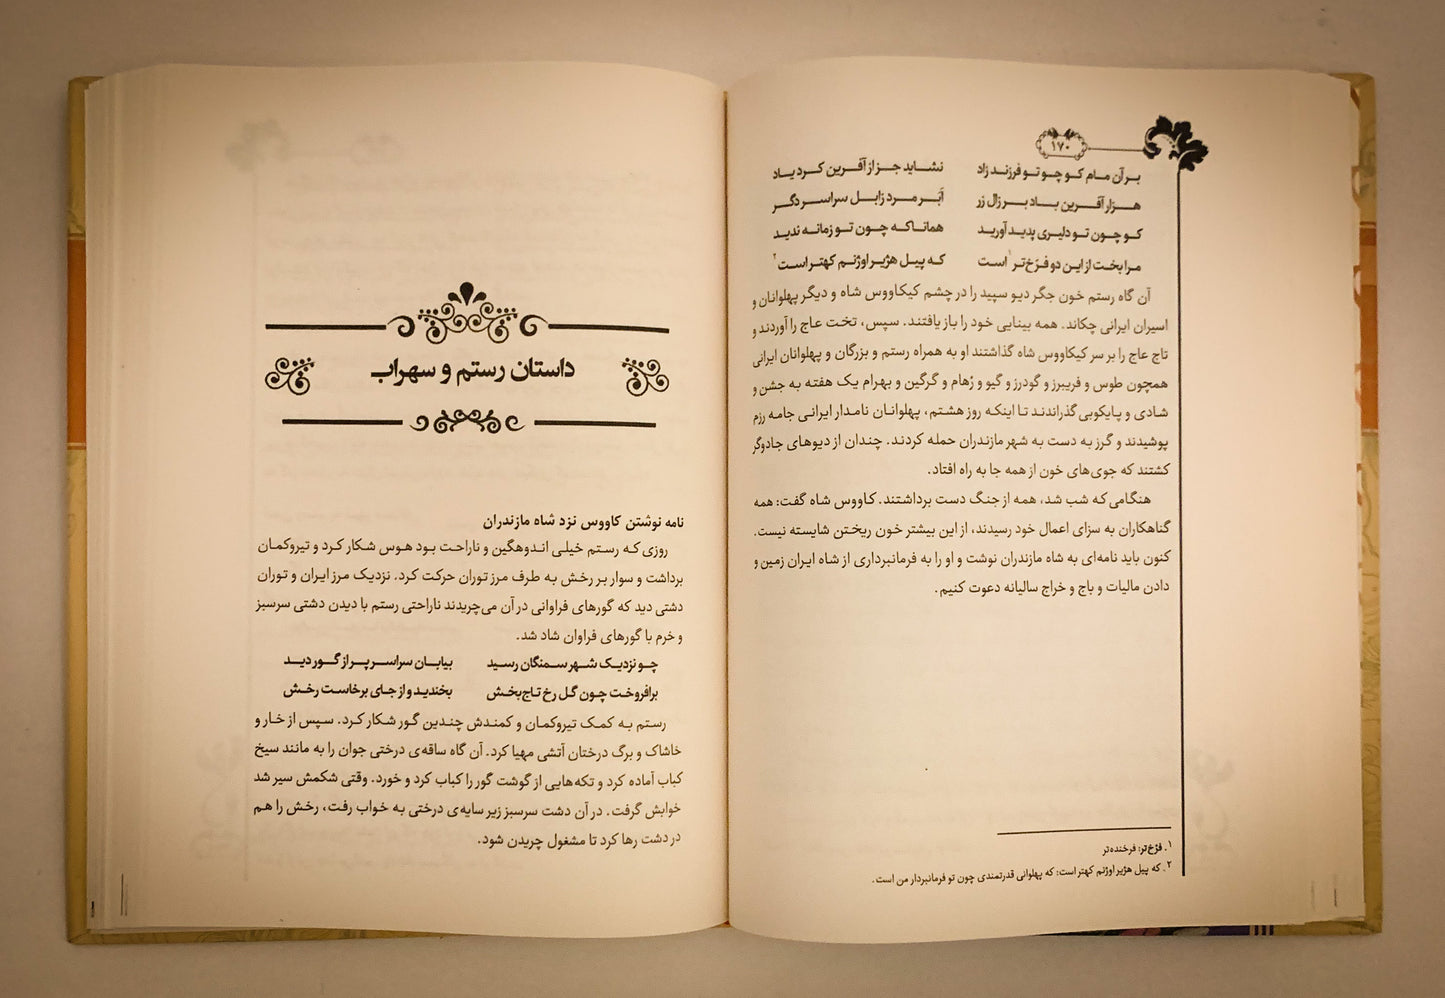 ۱۷۰
بر آن مام کو چو تو فرزند زاد نشاید جز از آفرین کرد یاد
هزار آفرین باد بر زال زر اَبَر مرد زابل سراسر دگر
کو چون تو دلیری پدید آورید همانا که چون تو زمانه ندید
مرا بخت از این دو فرّخ‌تر۱ است که پیل هژیر اوژنم کهتر است۲
آن گاه رستم خون جگر دیو سپید را در چشم کیکاووس شاه و دیگر پهلوانان و
اسیران ایرانی چکاند. همه بینایی خود را باز یافتند. سپس، تخت عاج را آوردند و
تاج عاج را بر سر کیکاووس شاه گذاشتند او به همراه رستم و بزرگان و پهلوانان ایرانی
همچون طوس و فریبرز و گودرز و گیو و رُهام و گرگین و بهرام یک هفته به جشن و
شادی و پایکوبی گذراندند تا اینکه روز هشتم، پهلوانان نامدار ایرانی جامه رزم
پوشیدند و گرز به دست به شهر مازندران حمله کردند. چندان از دیوهای جادوگر
کشتند که جوی‌های خون از همه جا به راه افتاد.
هنگامی که شب شد، همه از جنگ دست برداشتند. کاووس شاه گفت: همه
گناهکاران به سزای اعمال خود رسیدند، از این بیشتر خون ریختن شایسته نیست.
کنون باید نامه‌ای به شاه مازندران نوشت و او را به فرمانبرداری از شاه ایران زمین و
دادن مالیات و باج و خراج سالیانه دعوت کنیم.
۱. فرّخ‌تر: فرخنده‌تر
۲. که پیل هژیر اوژنم کهتر است: که پهلوانی قدرتمندی چون تو فرمانبردار من است.
داستان رستم و سهراب
نامه نوشتن کاووس نزد شاه مازندران
روزی که رستم خیلی اندوهگین و ناراحت بود هوس شکار کرد و تیروکمان
برداشت و سوار بر رخش به طرف مرز توران حرکت کرد. نزدیک مرز ایران و توران
دشتی دید که گورهای فراوانی در آن می‌چریدند ناراحتی رستم با دیدن دشتی سرسبز
و خرم با گورهای فراوان شاد شد.
چو نزدیک شهر سمنگان رسید بیابان سراسر پر از گور دید
برافروخت چون گل رخ تاج‌بخش بخندید و از جای برخاست رخش
رستم به کمک تیروکمان و کمندش چندین گور شکار کرد. سپس از خار و
خاشاک و برگ درختان آتشی مهیا کرد. آن گاه ساقه‌ی درختی جوان را به مانند سیخ
کباب آماده کرد و تکه‌هایی از گوشت گور را کباب کرد و خورد. وقتی شکمش سیر شد
خوابش گرفت. در آن دشت سرسبز زیر سایه‌ی درختی به خواب رفت، رخش را هم
در دشت رها کرد تا مشغول چریدن شود.